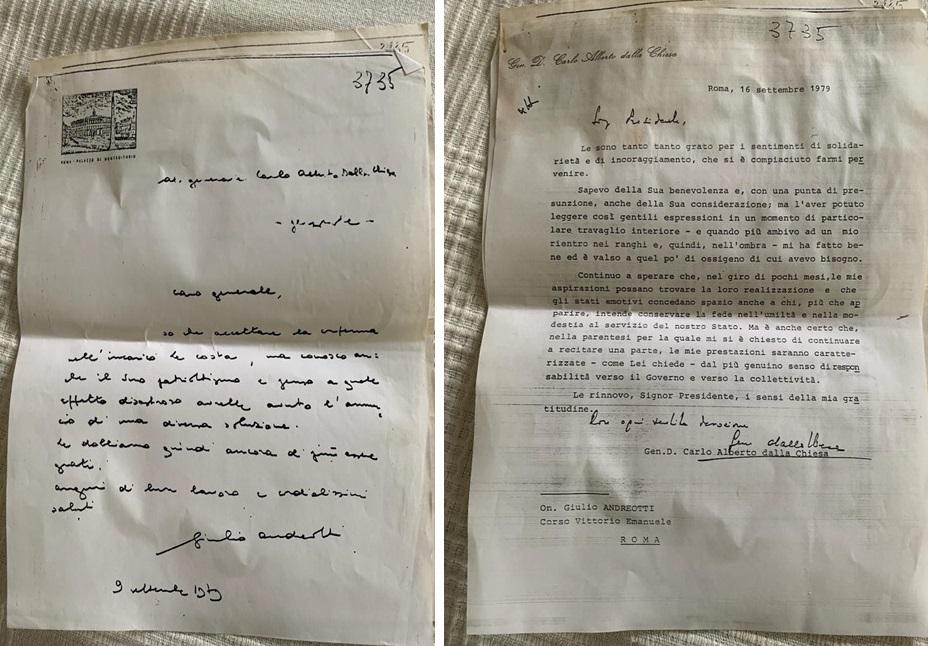 3735
ROMA - PALAZZO DI MONTECITORIO
al generale Carlo Alberto Dalla Chiesa
caro generale,
so che accettare la conferma
nell'incarico le costa, ma conosco an=
che il suo patriottismo e penso a quale
effetto disastroso avrebbe avuto l'annun
cio di una diversa soluzione.
Le dobbiamo quindi ancora di più essere
grati.
auguri di buon lavoro e cordialissimi
saluti
Giulio Andreotti
9 settembre 1979
3735
Gen. D. Carlo Alberto dalla Chiesa
Roma, 16 settembre 1979
Sig. Presidente,
Le sono tanto tanto grato per i sentimenti di solida-
rietà e di incoraggiamento, che si è compiaciuto farmi per
venire.
Sapevo della Sua benevolenza e, con una punta di pre-
sunzione, anche della Sua considerazione; ma l'aver potuto
leggere così gentili espressioni in un momento di partico-
lare travaglio interiore - e quando più ambivo ad un mio
rientro nei ranghi e, quindi, nell'ombra - mi ha fatto be-
ne ed è valso a quel po' di ossigeno di cui avevo bisogno.
Continuo a sperare che, nel giro di pochi mesi,le mie
aspirazioni possano trovare la loro realizzazione e che
gli stati emotivi concedano spazio anche a chi, più che ap
parire, intende conservare la fede nell'umiltà e nella mo-
destia al servizio del nostro Stato. Ma è anche certo che,
nella parentesi per la quale mi si è chiesto di continuare
a recitare una parte, le mie prestazioni saranno caratte-
rizzate - come Lei chiede - dal più genuino senso di respon
sabilità verso il Governo e verso la collettività.
Le rinnovo, Signor Presidente, i sensi della mia gra
titudine.
Con ogni sentita devozione
Gen. dalla Chiesa
Gen.D. Carlo Alberto dalla Chiesa
On. Giulio ANDREOTTI
Corso Vittorio Emanuele
ROMA